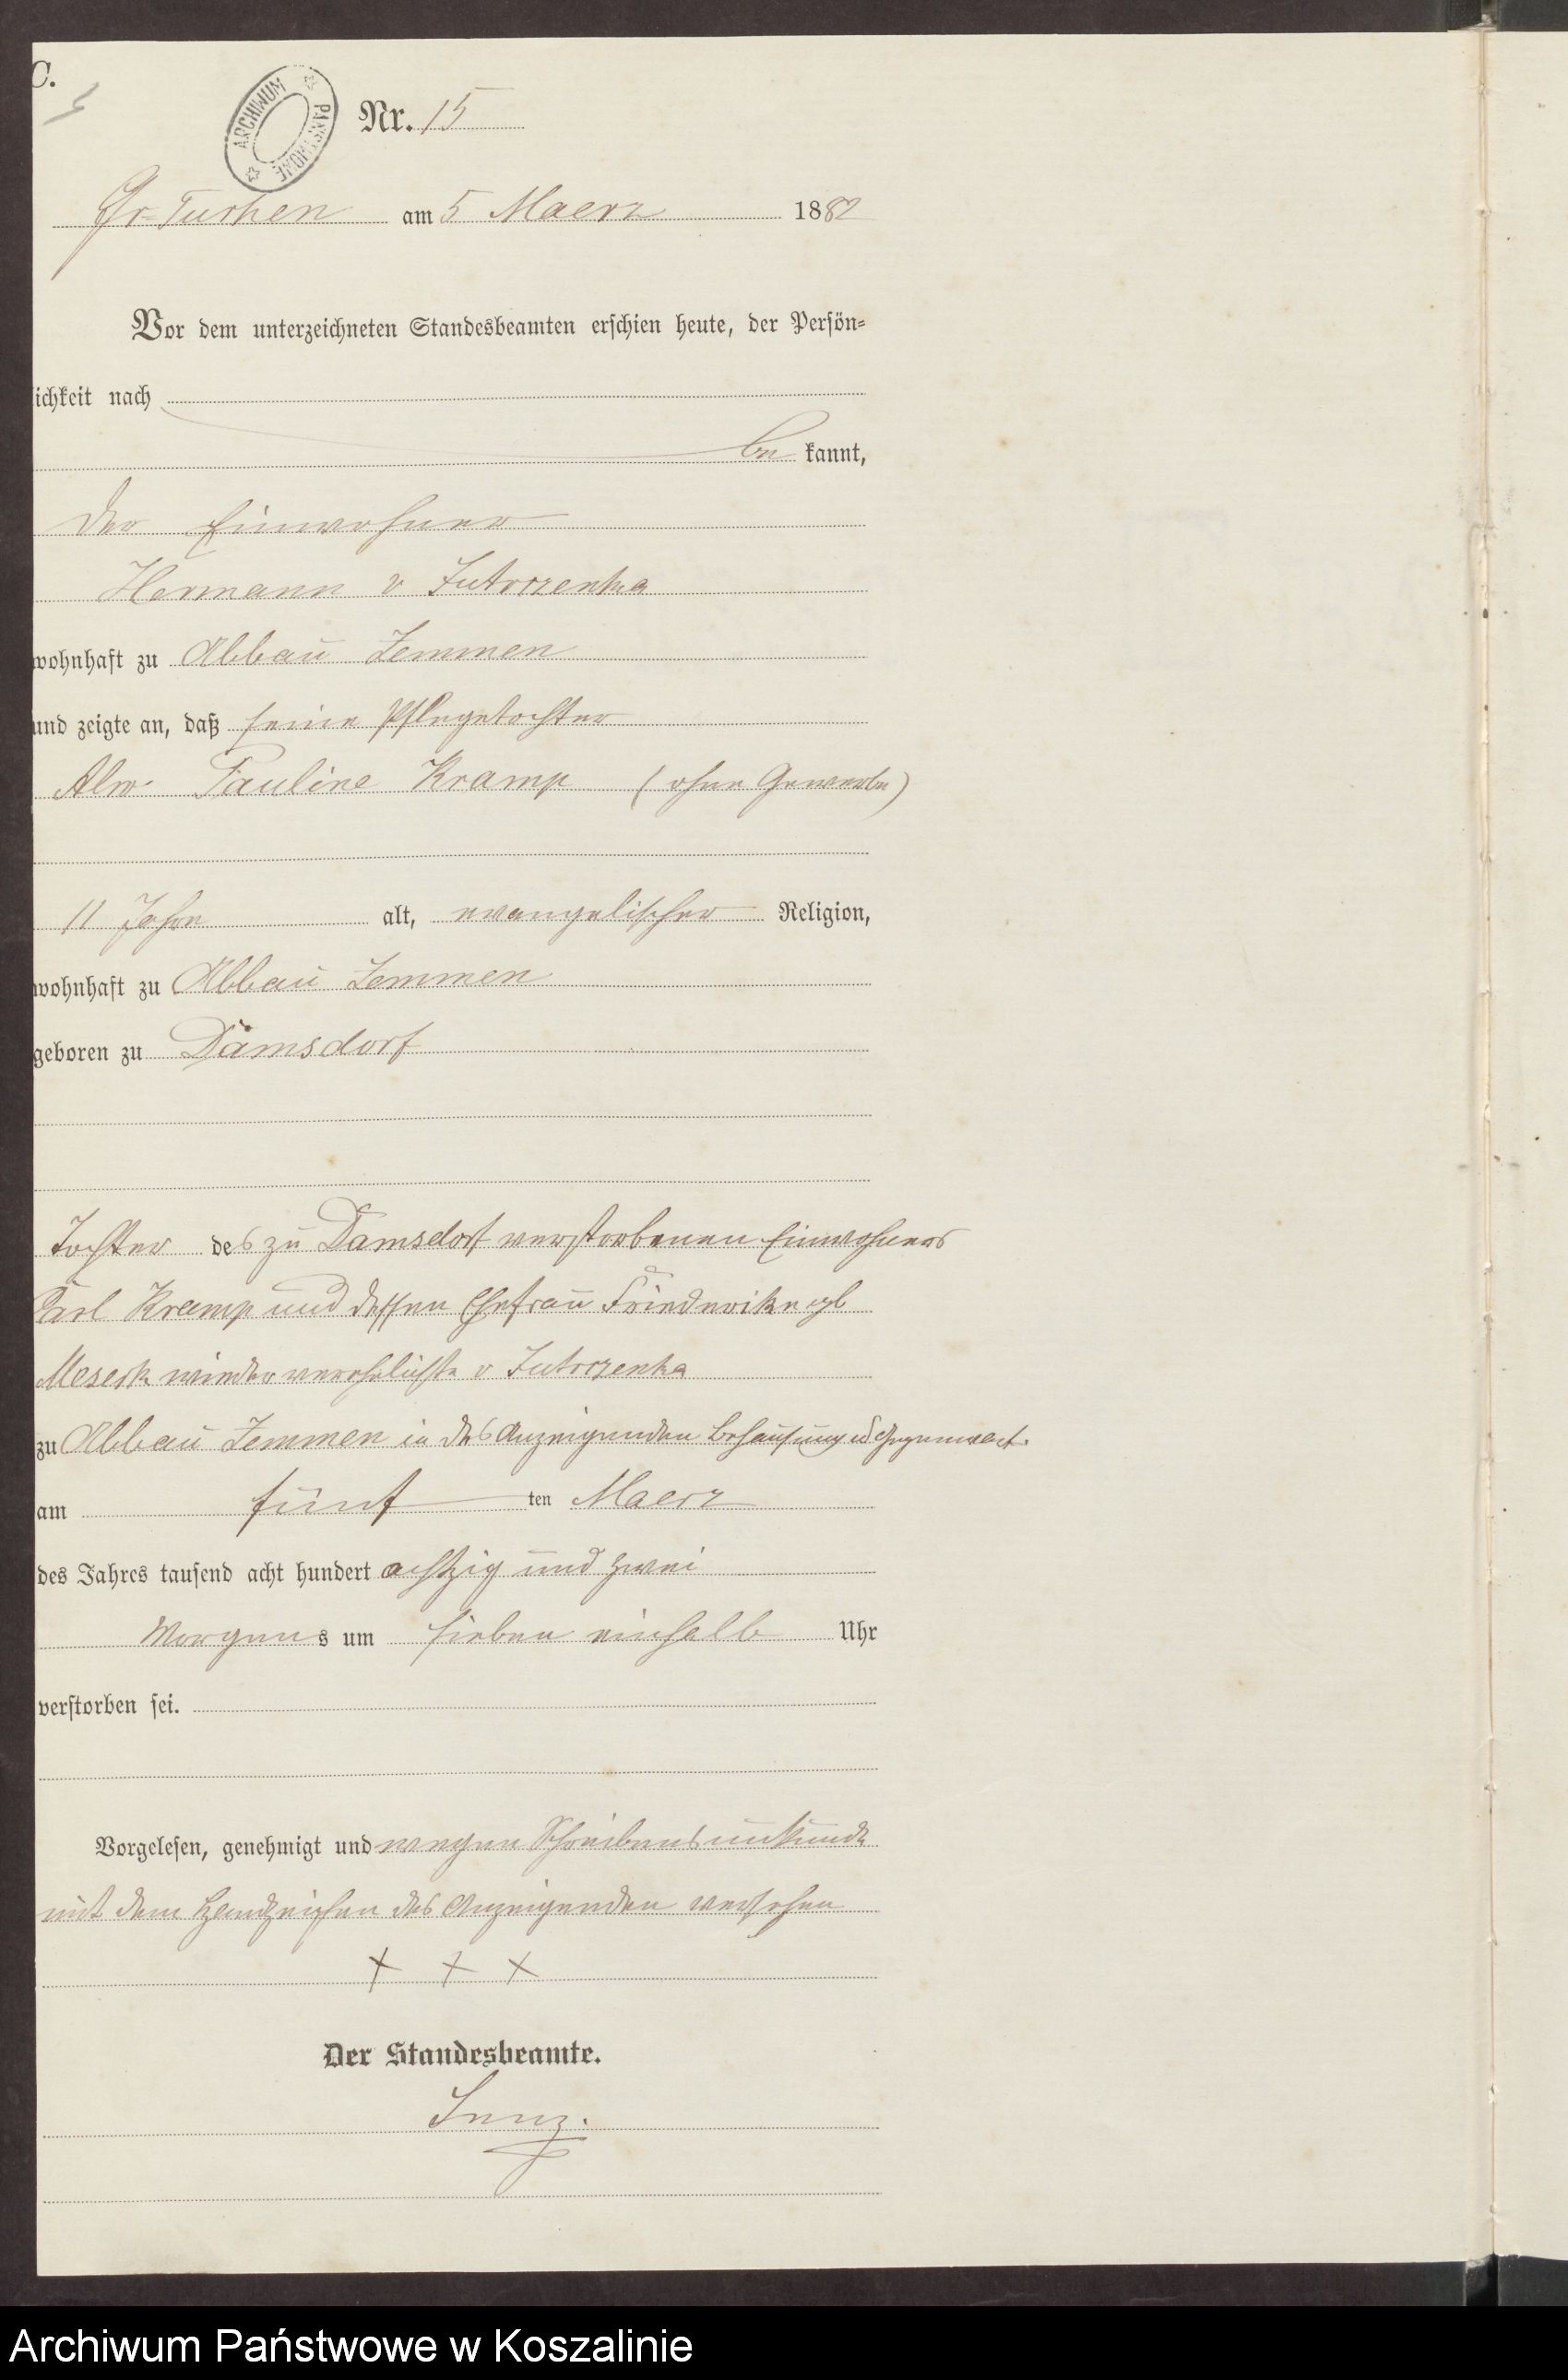 C.
ARCHIWUM PAŃSTWOWE
Nr. 15
Gr. Tuchen am 5 Maerz 1882
Vor dem unterzeichneten Standesbeamten erschien heute, der Persön=
lichkeit nach
be kannt,
der Einwohner
Hermann v Jutrczenka
wohnhaft zu Abbau Zemmen
und zeigte an, daß seine Pflegetochter
Pauline Kramp (ohne Gewerbe)
11 Jahre alt, evangelischer Religion,
wohnhaft zu Abbau Zemmen
geboren zu Damsdorf
Tochter des zu Damsdorf verstorbenen Einwohners
Carl Kramp und dessen Ehefrau Friederike gb
wieder verehelichte v Jutrczenka
zu Abbau Zemmen in des Anzeigenden Behausung u Gegenwart
am fünf ten Maerz
des Jahres tausend acht hundert achtzig und zwei
Morgens um sieben einhalb Uhr
verstorben sei.
Vorgelesen, genehmigt und wegen Schreibensunkunde
mit dem Handzeichen des Anzeigenden versehen
+ + +
Der Standesbeamte.
Archiwum Państwowe w Koszalinie